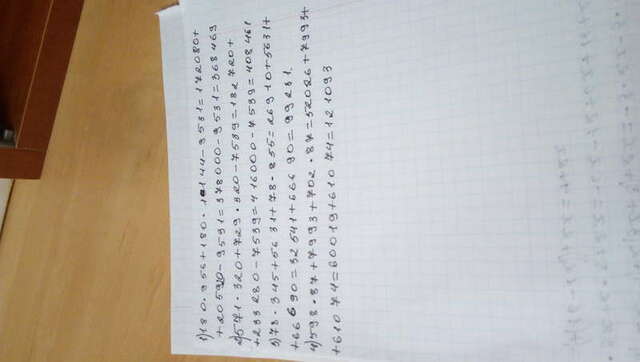 1)180·956+180·1144-9531=172080+
+205920-9531=378000-9531=368469
2)571·320+729·320-7539=182720+
+233280-7539=416000-7539=408461
3)78·345+5631+78·855=26910+5631+
+66690=32541+66690=99231.
4)598·87+7993+702·87=52026+7993+
+61074=60019+61074=121093